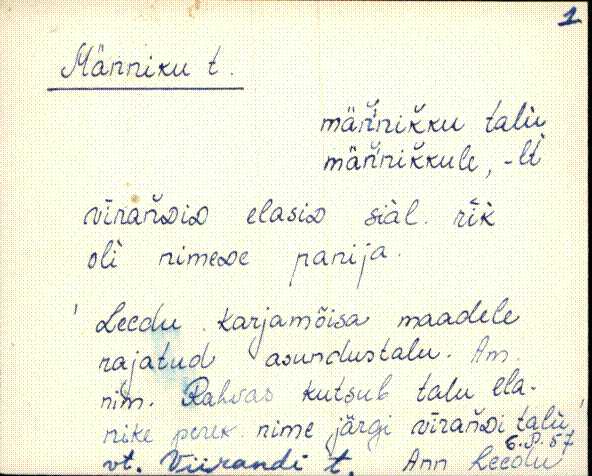 1
Männiku t.
mäňnikku talu
mäňnikkule, -lt
vīraňᴅiᴅ elasiᴅ siàl. rīk
oli nimeᴅe panija.
' Leedu karjamõisa maadele
rajatud asundustalu. Am.
nim. Rahvas kutsub talu ela-
nike perek. nime järgi vīraňᴅi talu'
6. 57
vt. Viirandi t. Ann Leedu